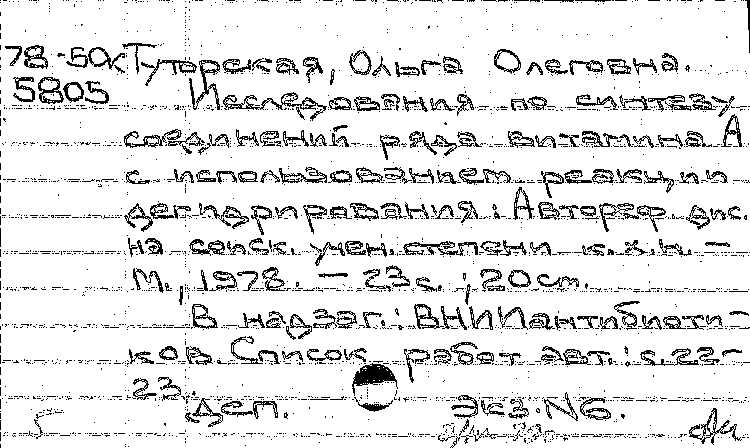 78-50к Туторская, Ольга Олеговна.
5805 Исследования по синтезу
соединений ряда витамина А
с использованием реакции
дегидрирования: Автореф. дис.
на соиск. учен. степени к.х.н. –
М., 1978. – 23с. ; 20см.
В надзаг.: ВНИИантибиоти-
ков. Список работ авт.: с.22-
23.
деп. Экз. N6.
5